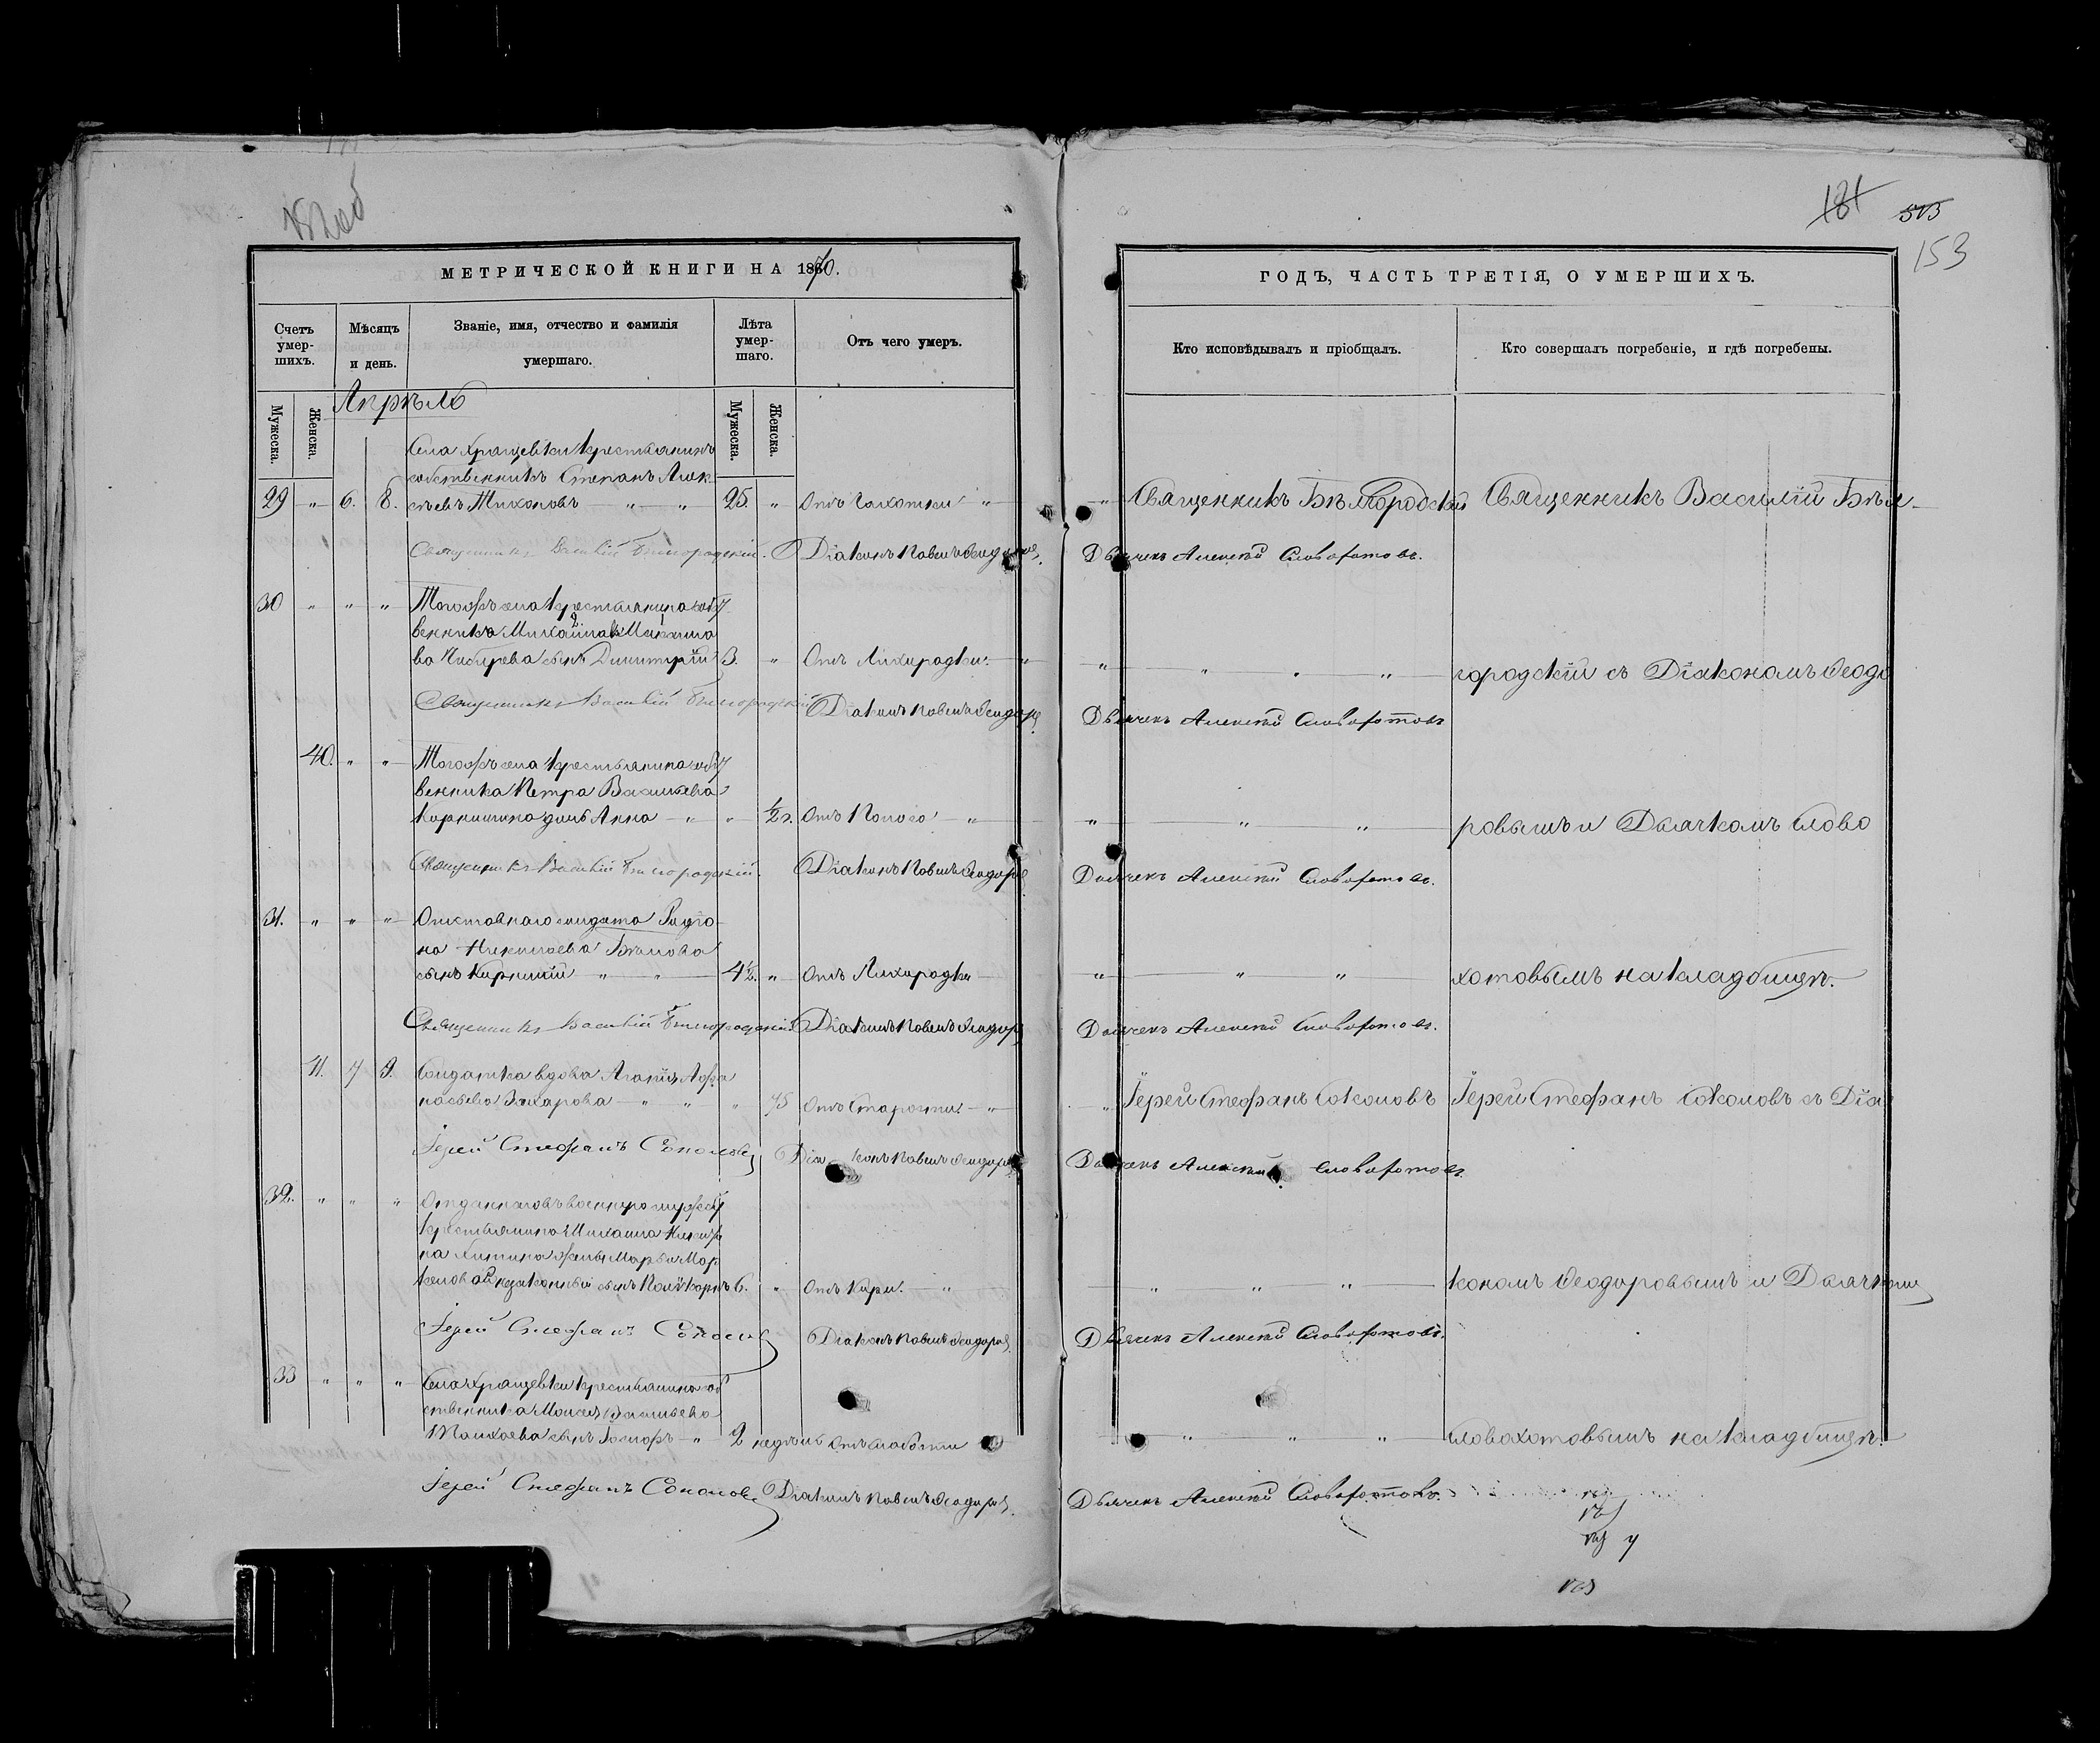 181 513
153
МЕТРИЧЕСКОЙ КНИГИ НА 1870.
Счетъ умер-шихъ.
Мѣсяцъ и день.
Званіе, имя, отчество и фамилія умершаго.
Лѣта умер-шаго.
Отъ чего умеръ.
Мужеска. Женска.
Мужеска. Женска.
Апрѣль
Села Хрящевки крестьянинъ
собственникъ Степанъ Алек
29 „ 6. 8. сѣевъ Тихоновъ „ „ 25. „ Отъ Чахотки „
Священникъ Василій Бѣлгородскій. Діаконъ Павелъ Ѳеодоровъ.
30 „ „ „ Тогожъ села крестьянина собст
венника Михаила
ва сынъ Димитрій 3. „ Отъ Лихорадки. „
Священникъ Василій Бѣлгородскій Діаконъ Павелъ Ѳеодоровъ
40. „ „ Тогожъ села крестьянина собст
венника Петра Васильева
дочь Анна „ „ ½ г. Отъ Поноса „
Священникъ Василій Бѣлгородскій. Діаконъ Павелъ Ѳеодоровъ
31. „ „ „ Отставнаго солдата Родіо
на Николаева Бѣлова
сынъ „ „ 4½. „ Отъ Лихорадки
Священникъ Василій Бѣлгородскій Діаконъ Павелъ Ѳеодоровъ
41. 7 9. Солдатка вдова Агапія Афа
насьева Захарова „ „ „ 75 Отъ Старости „
Іерей Стефанъ Соколовъ Діаконъ Павелъ Ѳеодоровъ
32. „ „ „ Отданнаго въ военную службу
крестьянина Михаила
на жены Марьи Мар
незаконный сынъ Поликарпъ 6. „ Отъ Кори. „
Іерей Стефанъ Соколовъ Діаконъ Павелъ Ѳеодоровъ.
33 „ „ „ Села Хрящевки крестьянина соб
ственника Моисея Васильева
сынъ Іосифъ „ 2 недѣль Отъ слабости
Іерей Стефанъ Соколовъ Діаконъ Павелъ Ѳеодоровъ.
ГОДЪ, ЧАСТЬ ТРЕТІЯ, О УМЕРШИХЪ.
Кто исповѣдывалъ и пріобщалъ.
Кто совершалъ погребеніе, и гдѣ погребены.
„ Священникъ Бѣлгородскій Священникъ Василій Бѣл-
Дьячекъ Алексѣй Словохотовъ.
„ „ „ „ городскій съ Діакономъ Ѳеодо
Дьячекъ Алексѣй Словохотовъ
„ „ „ ровымъ и Дьячкомъ Слово
Дьячекъ Алексѣй Словохотовъ.
„ „ „ хотовымъ на кладбищѣ.
Дьячекъ Алексѣй Словохотовъ.
„ Іерей Стефанъ Соколовъ Іерей Стефанъ Соколовъ съ Діа
Дьячекъ Алексѣй Словохотовъ.
„ „ „ кономъ Ѳеодоровымъ и Дьячкомъ
Дьячекъ Алексѣй Словохотовъ.
„ „ „ Словохотовымъ на кладбищѣ.
Дьячекъ Алексѣй Словохотовъ.